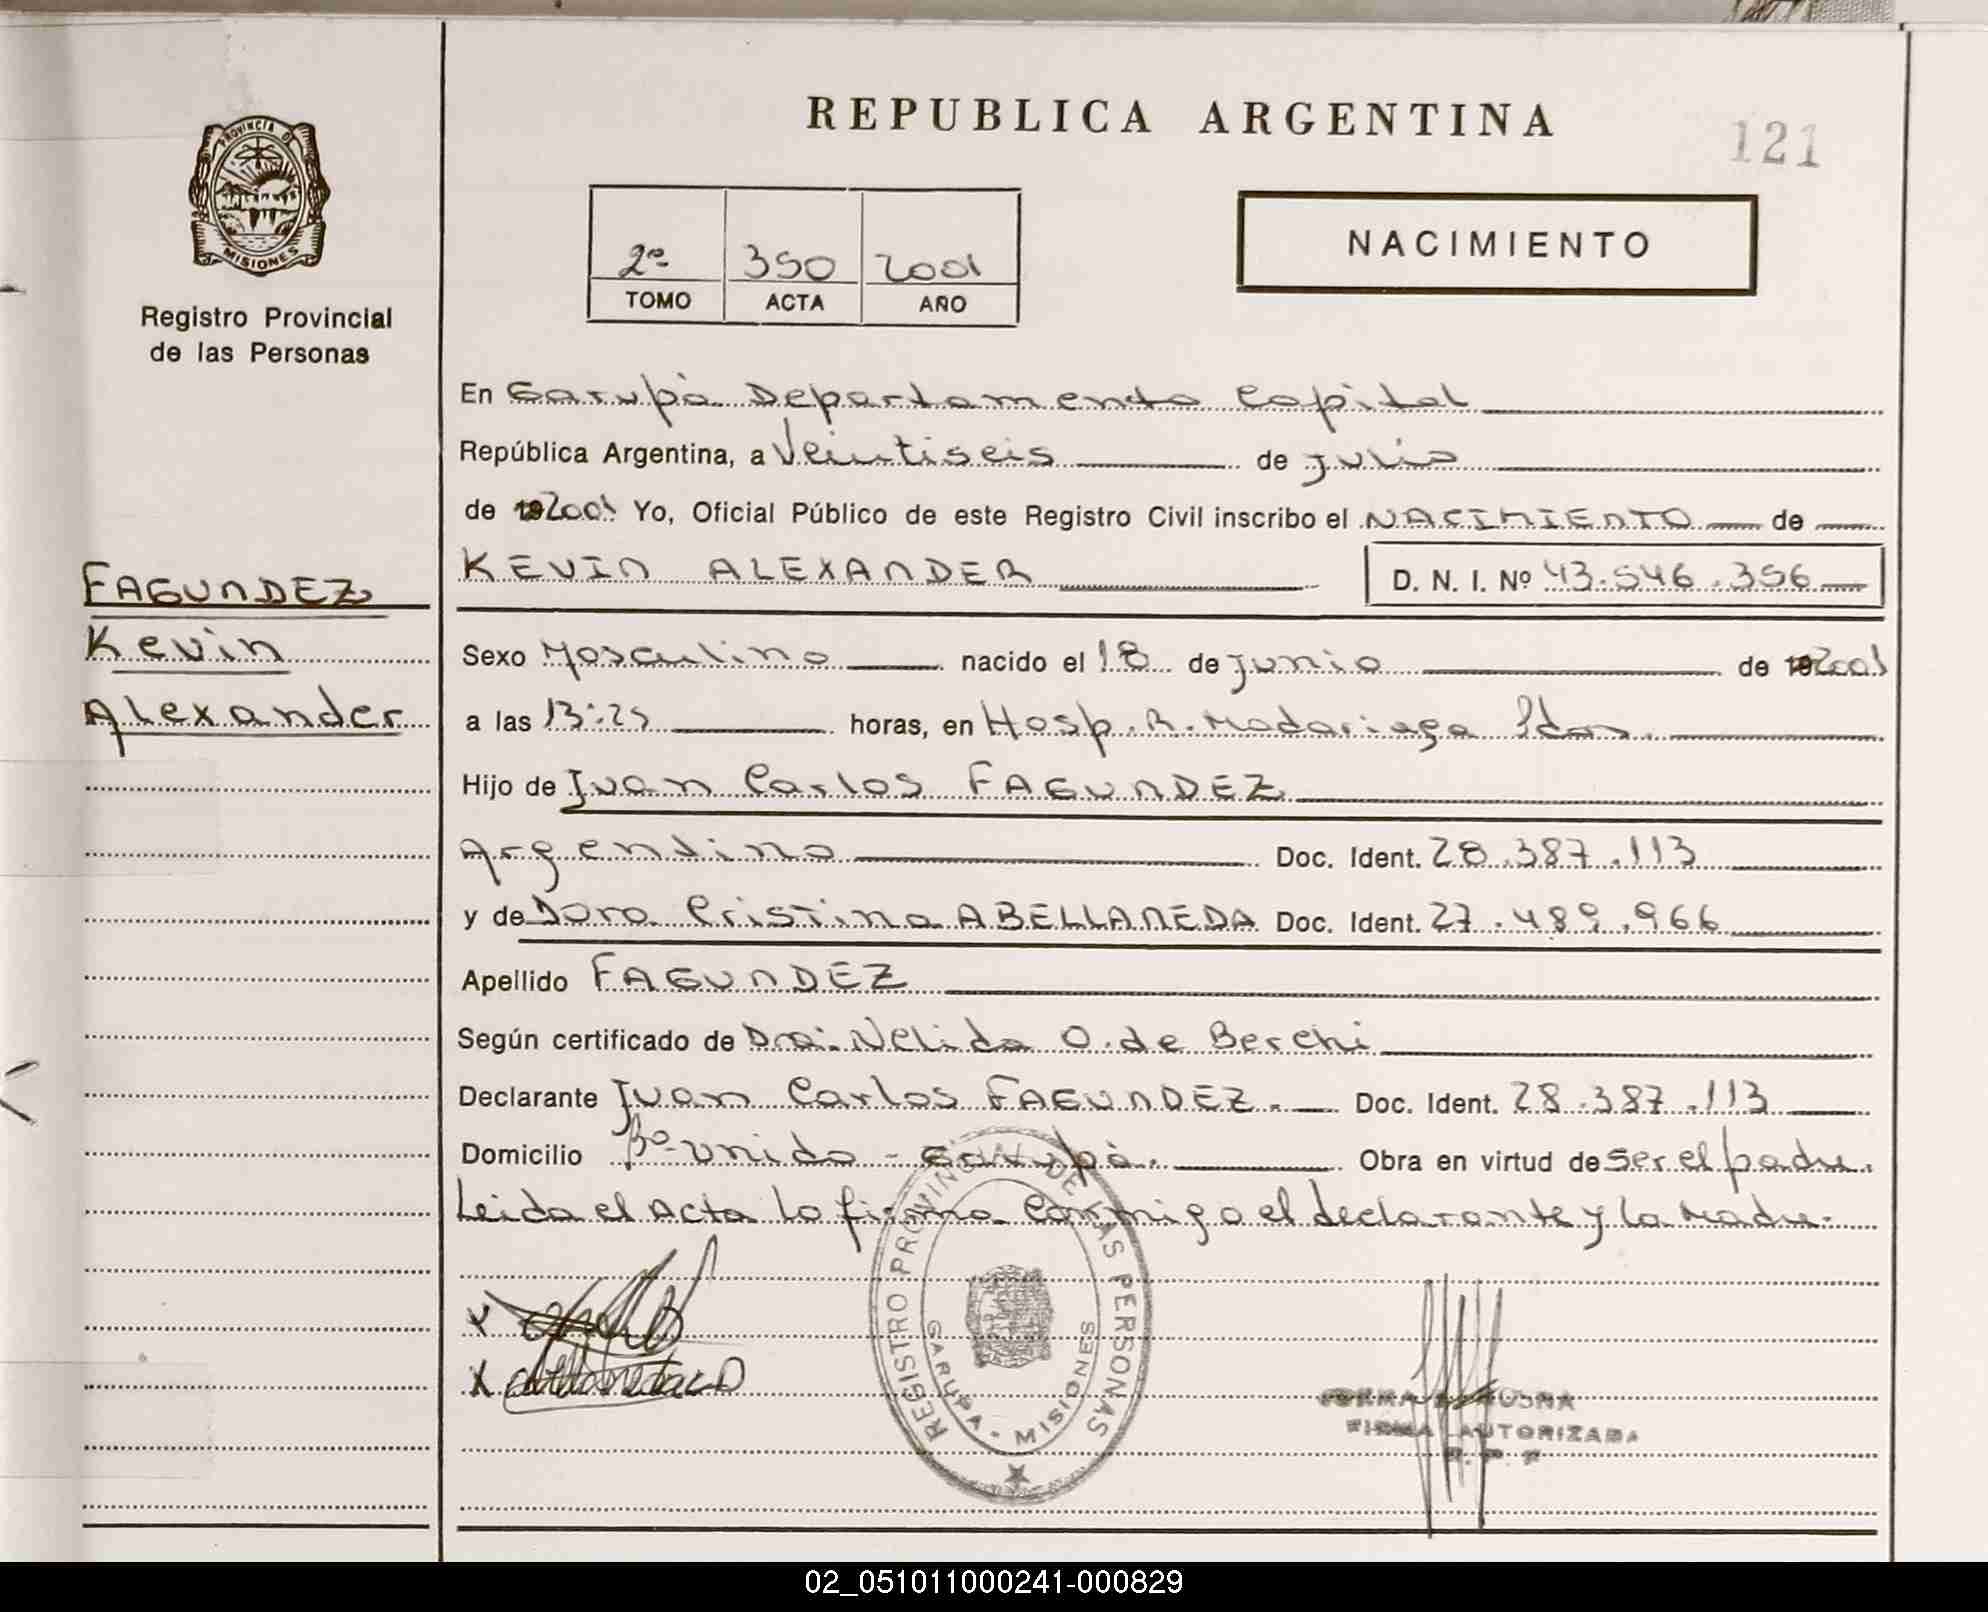 REPUBLICA ARGENTINA
121
PROVINCIA DE
MISIONES
Registro Provincial
de las Personas
2º 350 2001
TOMO ACTA AÑO
NACIMIENTO
En Garupá Departamento Capital
República Argentina, a Veintiseis de julio
de 2001 Yo, Oficial Público de este Registro Civil inscribo el NACIMIENTO de
KEVIN ALEXANDER D. N. I. Nº 43.546.356
FAGUNDEZ
Kevin
Alexander
Sexo Masculino nacido el 18 de junio de 2001
a las 13:25 horas, en Hosp. R. Madariaga Pdas.
Hijo de Juan Carlos FAGUNDEZ
Argentino Doc. Ident. 28.387.113
y de Dora Cristina ABELLANEDA Doc. Ident. 27.489.966
Apellido FAGUNDEZ
Según certificado de Dra. Nelida O. de Berchi
Declarante Juan Carlos FAGUNDEZ. Doc. Ident. 28.387.113
Domicilio Bº Unido - Garupá. Obra en virtud de ser el padre.
Leida el Acta la firma conmigo el declarante y la Madre.
REGISTRO PROVINCIAL DE LAS PERSONAS
GARUPA - MISIONES
FIRMA AUTORIZADA
02_051011000241-000829